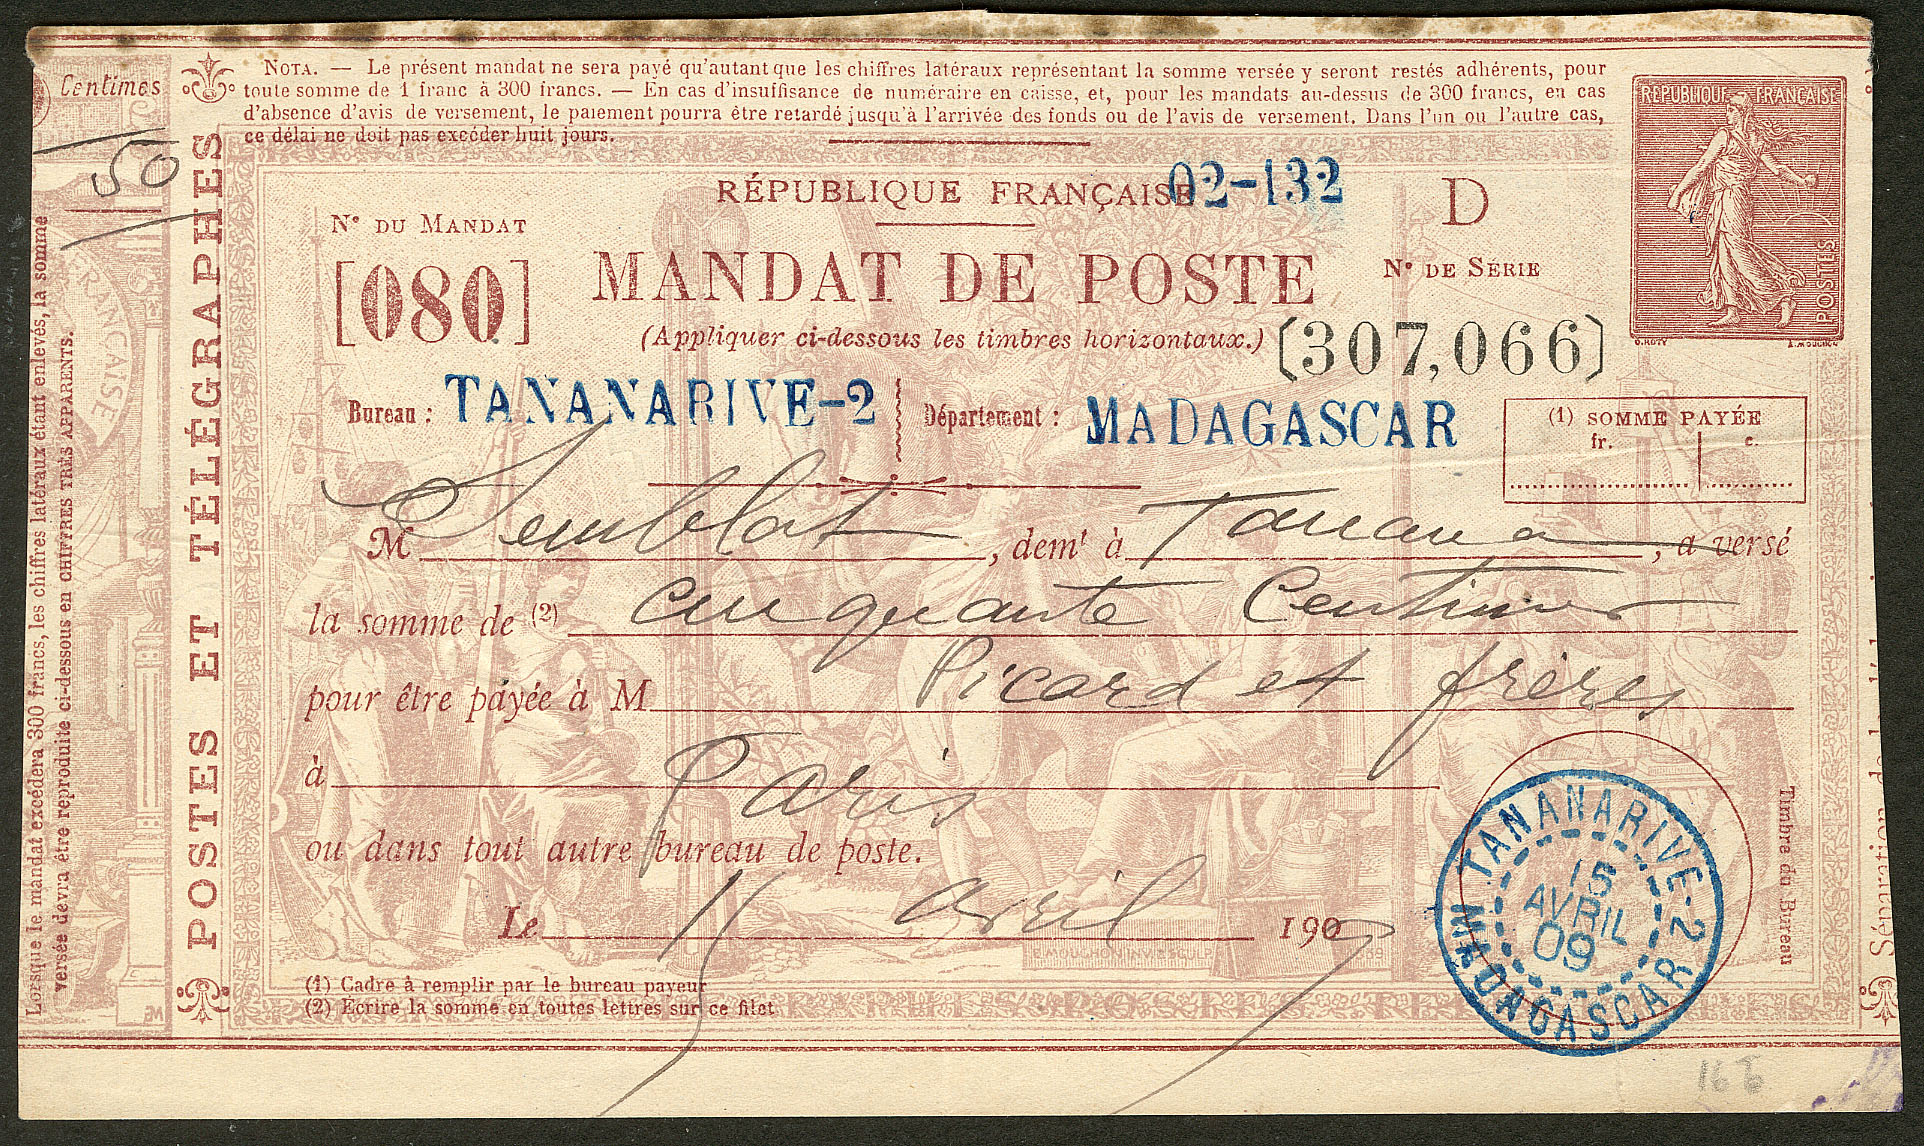 Centimes
50
NOTA. — Le présent mandat ne sera payé qu'autant que les chiffres latéraux représentant la somme versée y seront restés adhérents, pour
toute somme de 1 franc à 300 francs. — En cas d'insuffisance de numéraire en caisse, et, pour les mandats au-dessus de 300 francs, en cas
d'absence d'avis de versement, le paiement pourra être retardé jusqu'à l'arrivée des fonds ou de l'avis de versement. Dans l'un ou l'autre cas,
ce délai ne doit pas excéder huit jours.
RÉPUBLIQUE FRANÇAISE
POSTES
O. ROTY
A. MOUCHON
RÉPUBLIQUE FRANÇAISE
02-132
D
N° DU MANDAT
[080]
MANDAT DE POSTE
N° DE SÉRIE
(Appliquer ci-dessous les timbres horizontaux.)
(307,066)
Bureau : TANANARIVE-2
Département : MADAGASCAR
(1) SOMME PAYÉE
fr. c.
M Semblat, demt à Tanana, a versé
la somme de (2) cinquante Centimes
pour être payée à M Picard et frères
à Paris
ou dans tout autre bureau de poste.
Le 15 avril 1909
TANANARIVE-2
15
AVRIL
09
MADAGASCAR
Timbre du Bureau
(1) Cadre à remplir par le bureau payeur
(2) Écrire la somme en toutes lettres sur ce filet
L. MOUCHON INV. & SCULP.
POSTES ET TÉLÉGRAPHES
Lorsque le mandat excédera 300 francs, les chiffres latéraux étant enlevés, la somme
versée devra être reproduite ci-dessous en CHIFFRES TRÈS APPARENTS.
FRANÇAISE
EM
Séparation de
16